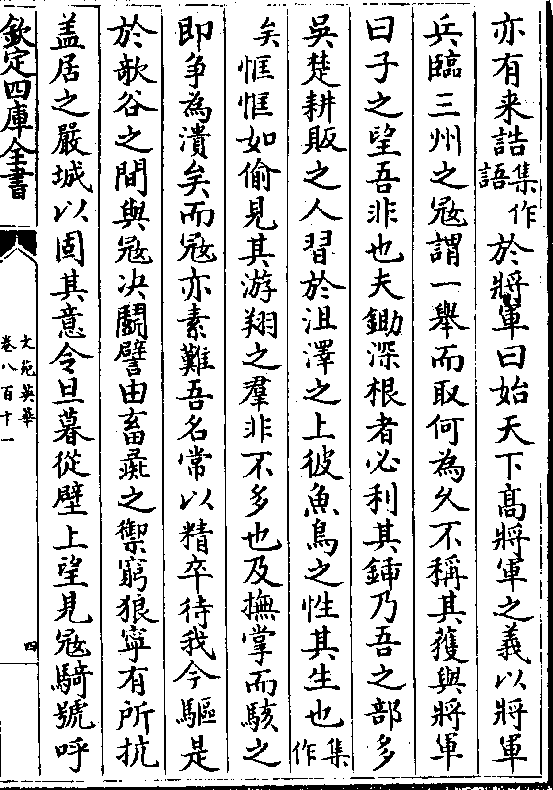 亦有来誥集作語於將軍曰始天下髙將軍之義以將軍
兵臨三州之㓂謂一舉而取何為久不稱其獲與將軍
曰子之望吾非也夫鋤深根者必利其鍤乃吾之部多
吳楚耕販之人習於沮澤之上彼魚鳥之性其生也集作
矣恇恇如偷見其游翔之羣非不多也及撫掌而駭之
即爭為潰矣而㓂亦素難吾名常以精卒待我今驅是
於歌谷之間與㓂決鬬譬由畜彘之禦窮狼寧有所抗
盖居之嚴城以固其意令旦暮從壁上望見㓂騎號呼
欽定四庫全書
文苑英華
卷八百十一
四